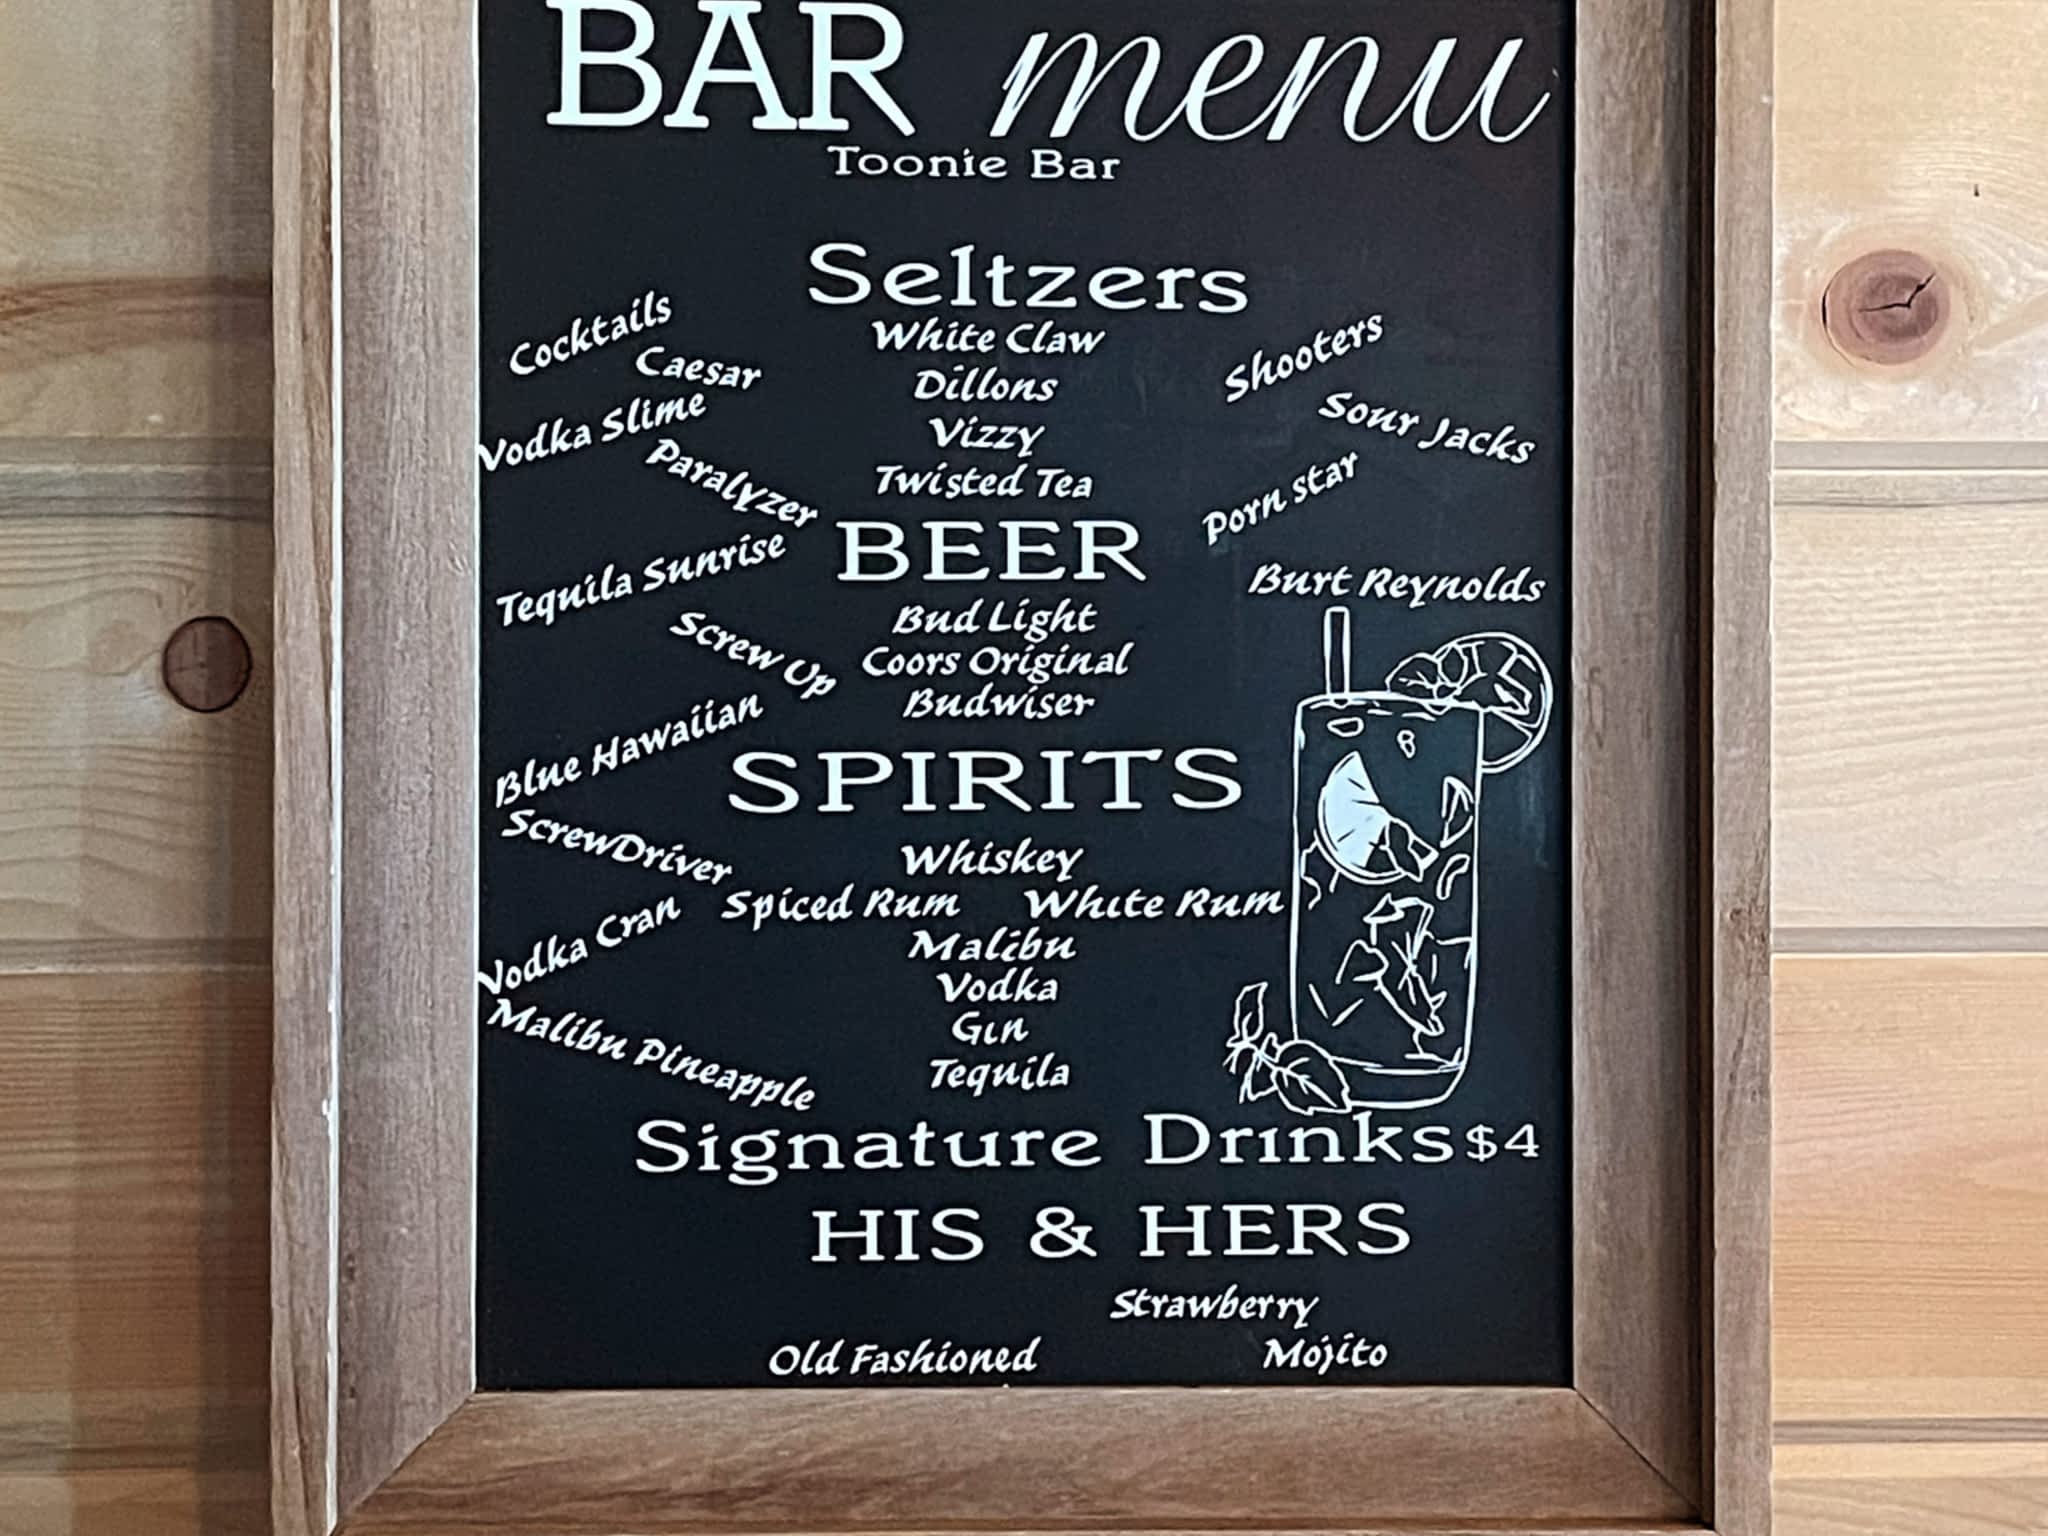 BAR menu
Toonie Bar
Cocktails
Caesar
Vodka Slime
Paralyzer
Tequila Sunrise
Screw Up
Blue Hawaiian
ScrewDriver
Vodka Cran
Malibu Pineapple
Seltzers
White Claw
Dillons
Vizzy
Twisted Tea
BEER
Bud Light
Coors Original
Budwiser
SPIRITS
Whiskey
Spiced Rum White Rum
Malibu
Vodka
Gin
Tequila
Shooters
Sour Jacks
Porn star
Burt Reynolds
Signature Drinks $4
HIS & HERS
Strawberry
Old Fashioned Mojito